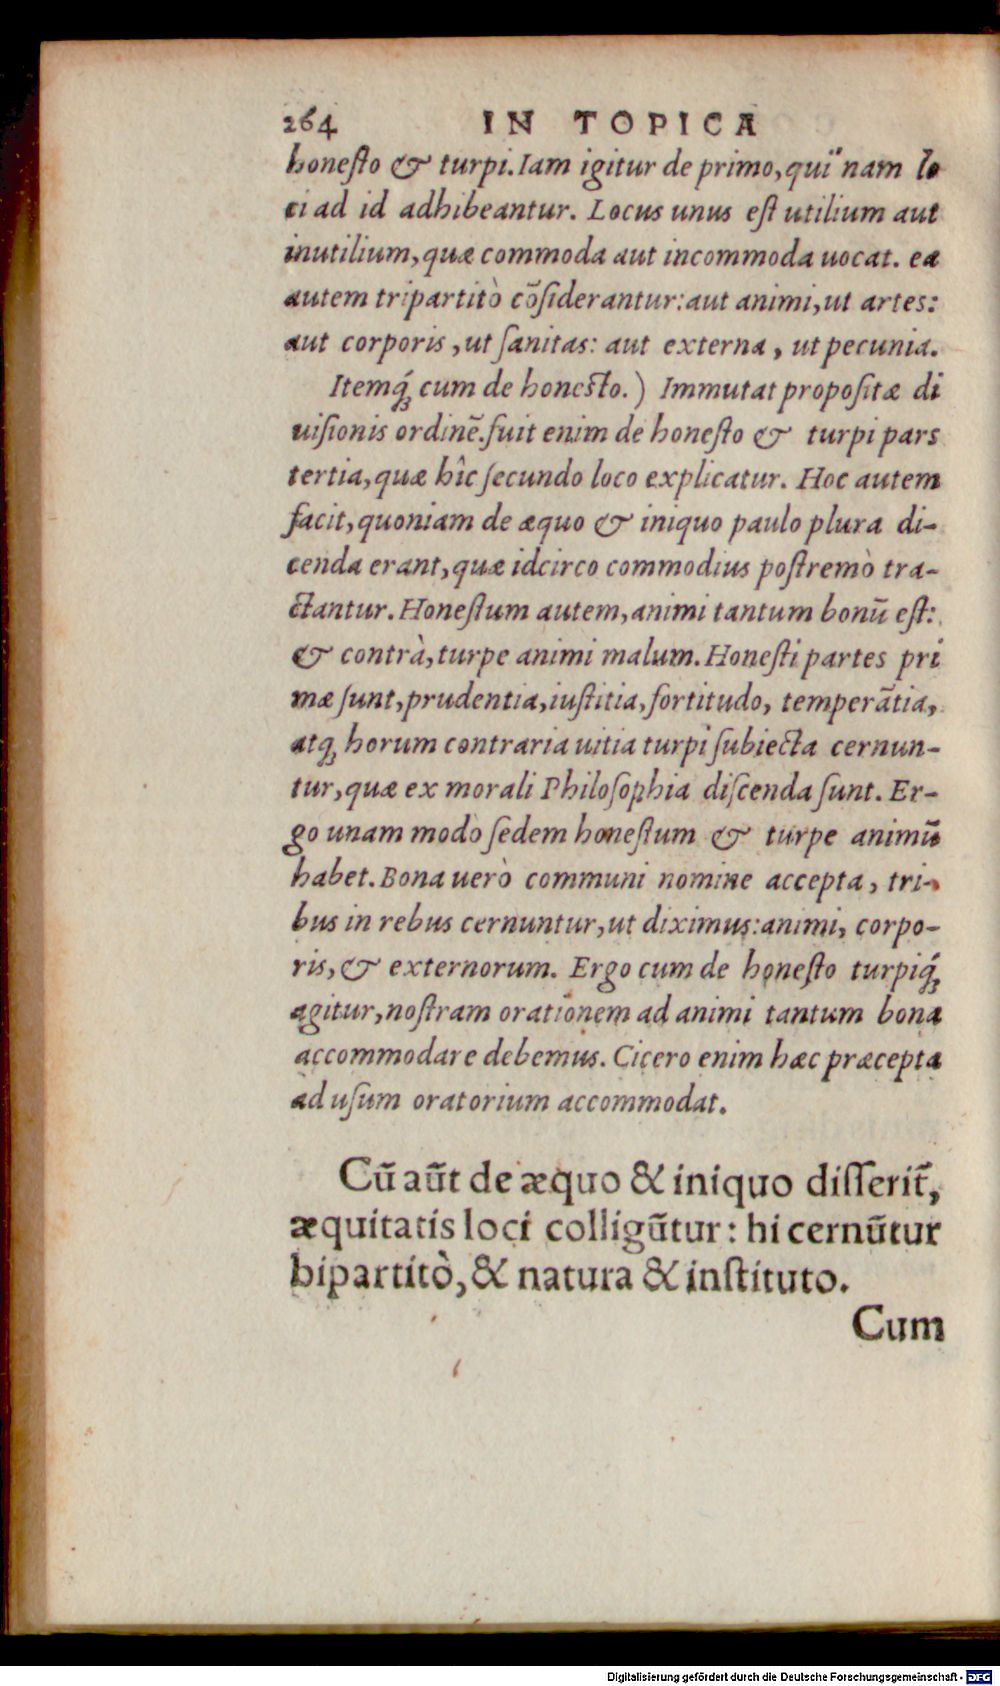 264 IN TOPICA
honesto & turpi. Iam igitur de primo, quinam lo
ci ad id adhibeantur. Locus unus est utilium aut
inutilium, quæ commoda aut incommoda uocat. ea
autem tripartitò cõsiderantur: aut animi, ut artes:
aut corporis, ut sanitas: aut externa, ut pecunia.
Itemq́; cum de honesto.) Immutat propositæ di
uisionis ordinẽ. fuit enim de honesto & turpi pars
tertia, quæ hîc secundo loco explicatur. Hoc autem
facit, quoniam de æquo & iniquo paulo plura di-
cenda erant, quæ idcirco commodius postremò tra-
ctantur. Honestum autem, animi tantum bonũ est:
& contrà, turpe animi malum. Honesti partes pri
mæ sunt, prudentia, iustitia, fortitudo, temperãtia,
atq; horum contraria uitia turpi subiecta cernun-
tur, quæ ex morali Philosophia discenda sunt. Er-
go unam modò sedem honestum & turpe animũ
habet. Bona uerò communi nomine accepta, tri-
bus in rebus cernuntur, ut diximus: animi, corpo-
ris, & externorum. Ergo cum de honesto turpiq́;
agitur, nostram orationem ad animi tantum bona
accommodare debemus. Cicero enim hæc præcepta
ad usum oratorium accommodat.
Cũ aũt de æquo & iniquo disserit̃,
æquitatis loci colligũtur: hi cernũtur
bipartitò, & natura & instituto.
Cum
Digitalisierung gefördert durch die Deutsche Forschungsgemeinschaft - DFG